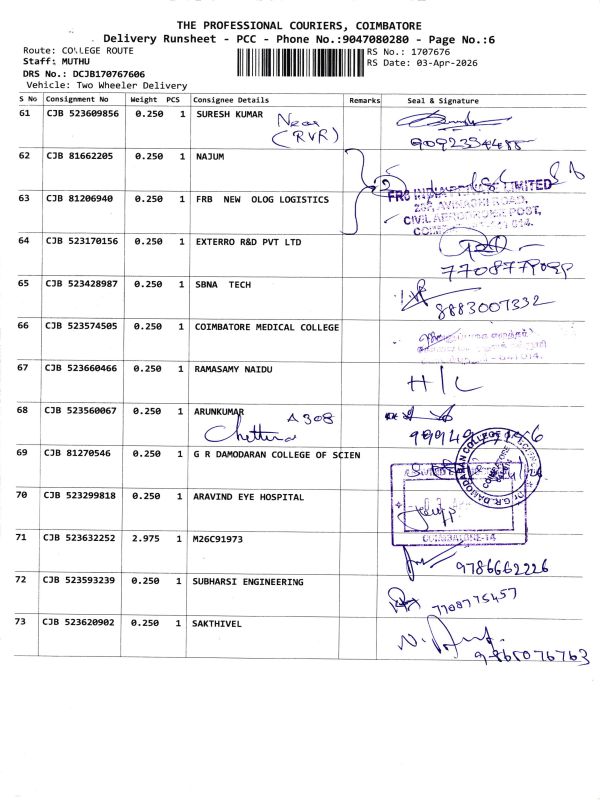 THE PROFESSIONAL COURIERS, COIMBATORE
Delivery Runsheet - PCC - Phone No.:9047080280 - Page No.:6
Route: COLLEGE ROUTE
RS No.: 1707676
Staff: MUTHU
RS Date: 03-Apr-2026
DRS No.: DCJB170767606
Vehicle: Two Wheeler Delivery
S No Consignment No Weight PCS Consignee Details Remarks Seal & Signature
61 CJB 523609856 0.250 1 SURESH KUMAR
Near
(RVR)
62 CJB 81662205 0.250 1 NAJUM
2
63 CJB 81206940 0.250 1 FRB NEW OLOG LOGISTICS
LIMITED
64 CJB 523170156 0.250 1 EXTERRO R&D PVT LTD
65 CJB 523428987 0.250 1 SBNA TECH
8883007332
66 CJB 523574505 0.250 1 COIMBATORE MEDICAL COLLEGE
67 CJB 523660466 0.250 1 RAMASAMY NAIDU
H/L
68 CJB 523560067 0.250 1 ARUNKUMAR A308
69 CJB 81270546 0.250 1 G R DAMODARAN COLLEGE OF SCIEN
70 CJB 523299818 0.250 1 ARAVIND EYE HOSPITAL
COIMBATORE-14
71 CJB 523632252 2.975 1 M26C91973
9786662226
72 CJB 523593239 0.250 1 SUBHARSI ENGINEERING
7708775457
73 CJB 523620902 0.250 1 SAKTHIVEL
9865076763